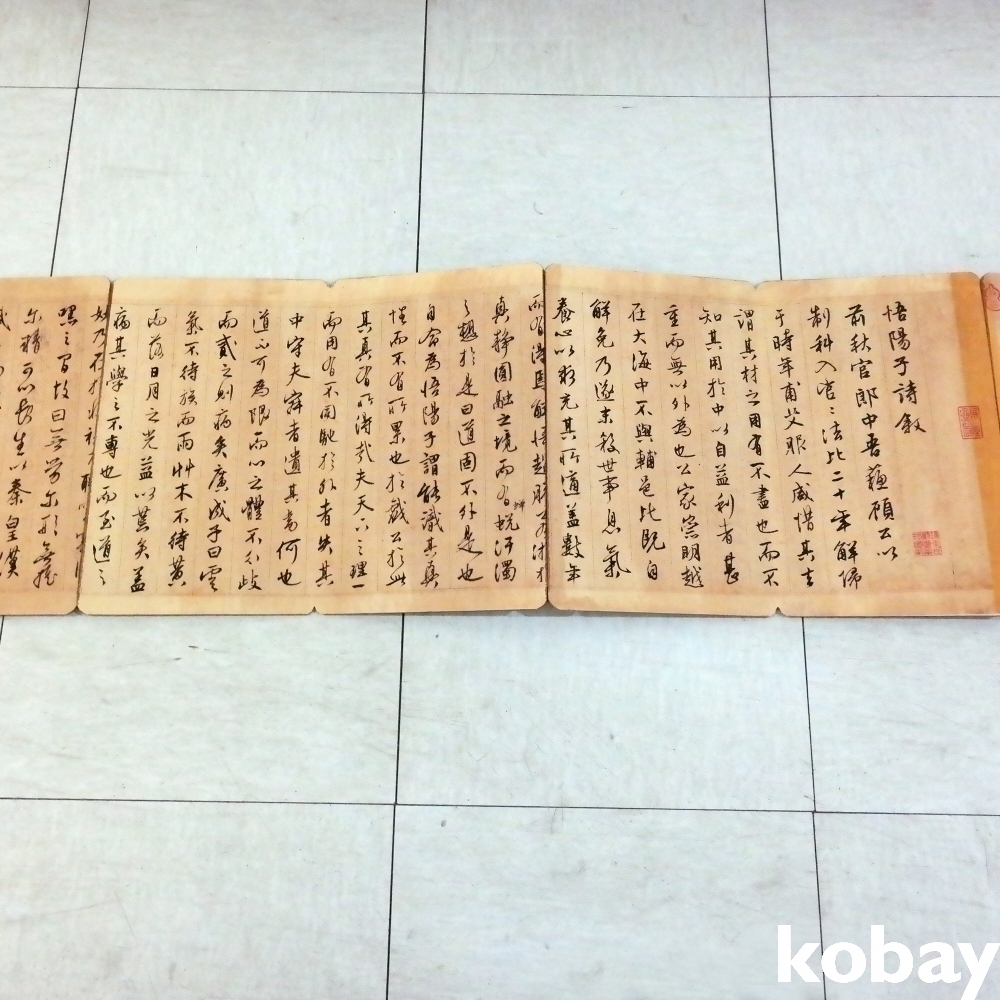 悟陽子詩敘
前秋官郎中吾蘓頋公以
制科入官官法比二十年解歸
于時年甫艾服人咸惜其去
謂其材之用有不盡也而不
知其用於中以自益利者甚
重而無以外為也公家崇明越
在大海中不與輔邑比既自
解免乃遂棄捐世事息氣
養心以求充其所道蓋數年
而有得焉
真靜圓融之境而有蛻汙濁
之趣於是曰道固不外是也
自命為悟陽子謂能識其真
性而不有所累也於戲公於此
其真有所得哉夫天下之理一
中守夫寂者遺其書何也
而用有不周馳於外者失其
道不可為限而心之體不可歧
而貳之則病矣廣成子曰雲
氣不待族而雨艸木不待黃
而落日月之光益以荒矣蓋
病其學之不專也而至道之
妙乃在於
嘿之間故曰無勞尔形無搖
尔精可以長生以秦皇漢
kobay